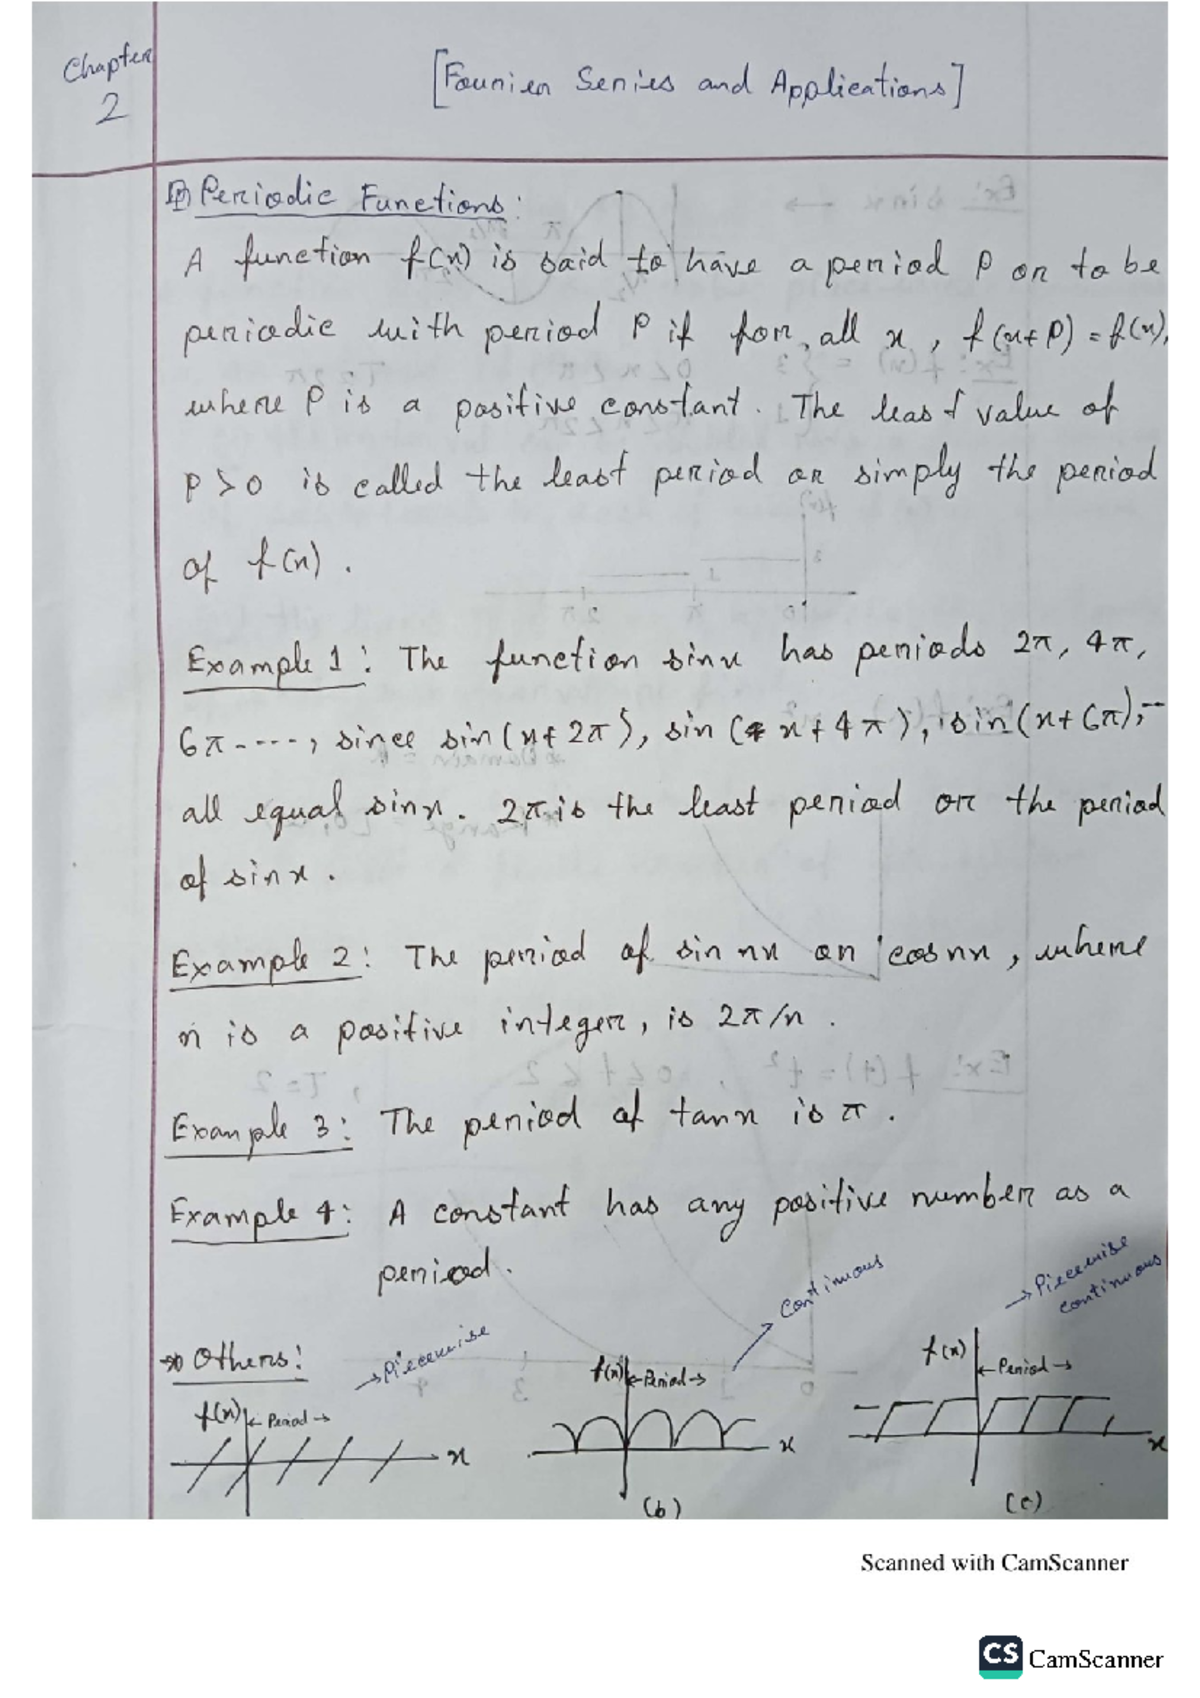 Chapter
2
[Fourier Series and Applications]
Periodic Functions:
A function f(x) is said to have a period P or to be
periodic with period P if for all x, f(x+P) = f(x),
where P is a positive constant. The least value of
P > 0 is called the least period or simply the period
of f(x).
Example 1: The function sinx has periods 2π, 4π,
6π----, since sin(x+2π), sin(x+4π), sin(x+6π),--
all equal sinx. 2π is the least period or the period
of sinx.
Example 2: The period of sin nx or cosnx, where
n is a positive integer, is 2π/n.
Example 3: The period of tanx is π.
Example 4: A constant has any positive number as a
period.
→ Others:
→Piecewise
→ Continuous
→Piecewise
continuous
f(x) ← Period →
x
f(x) ← Period →
x
(b)
f(x)
← Period →
x
(c)
Scanned with CamScanner
CS CamScanner